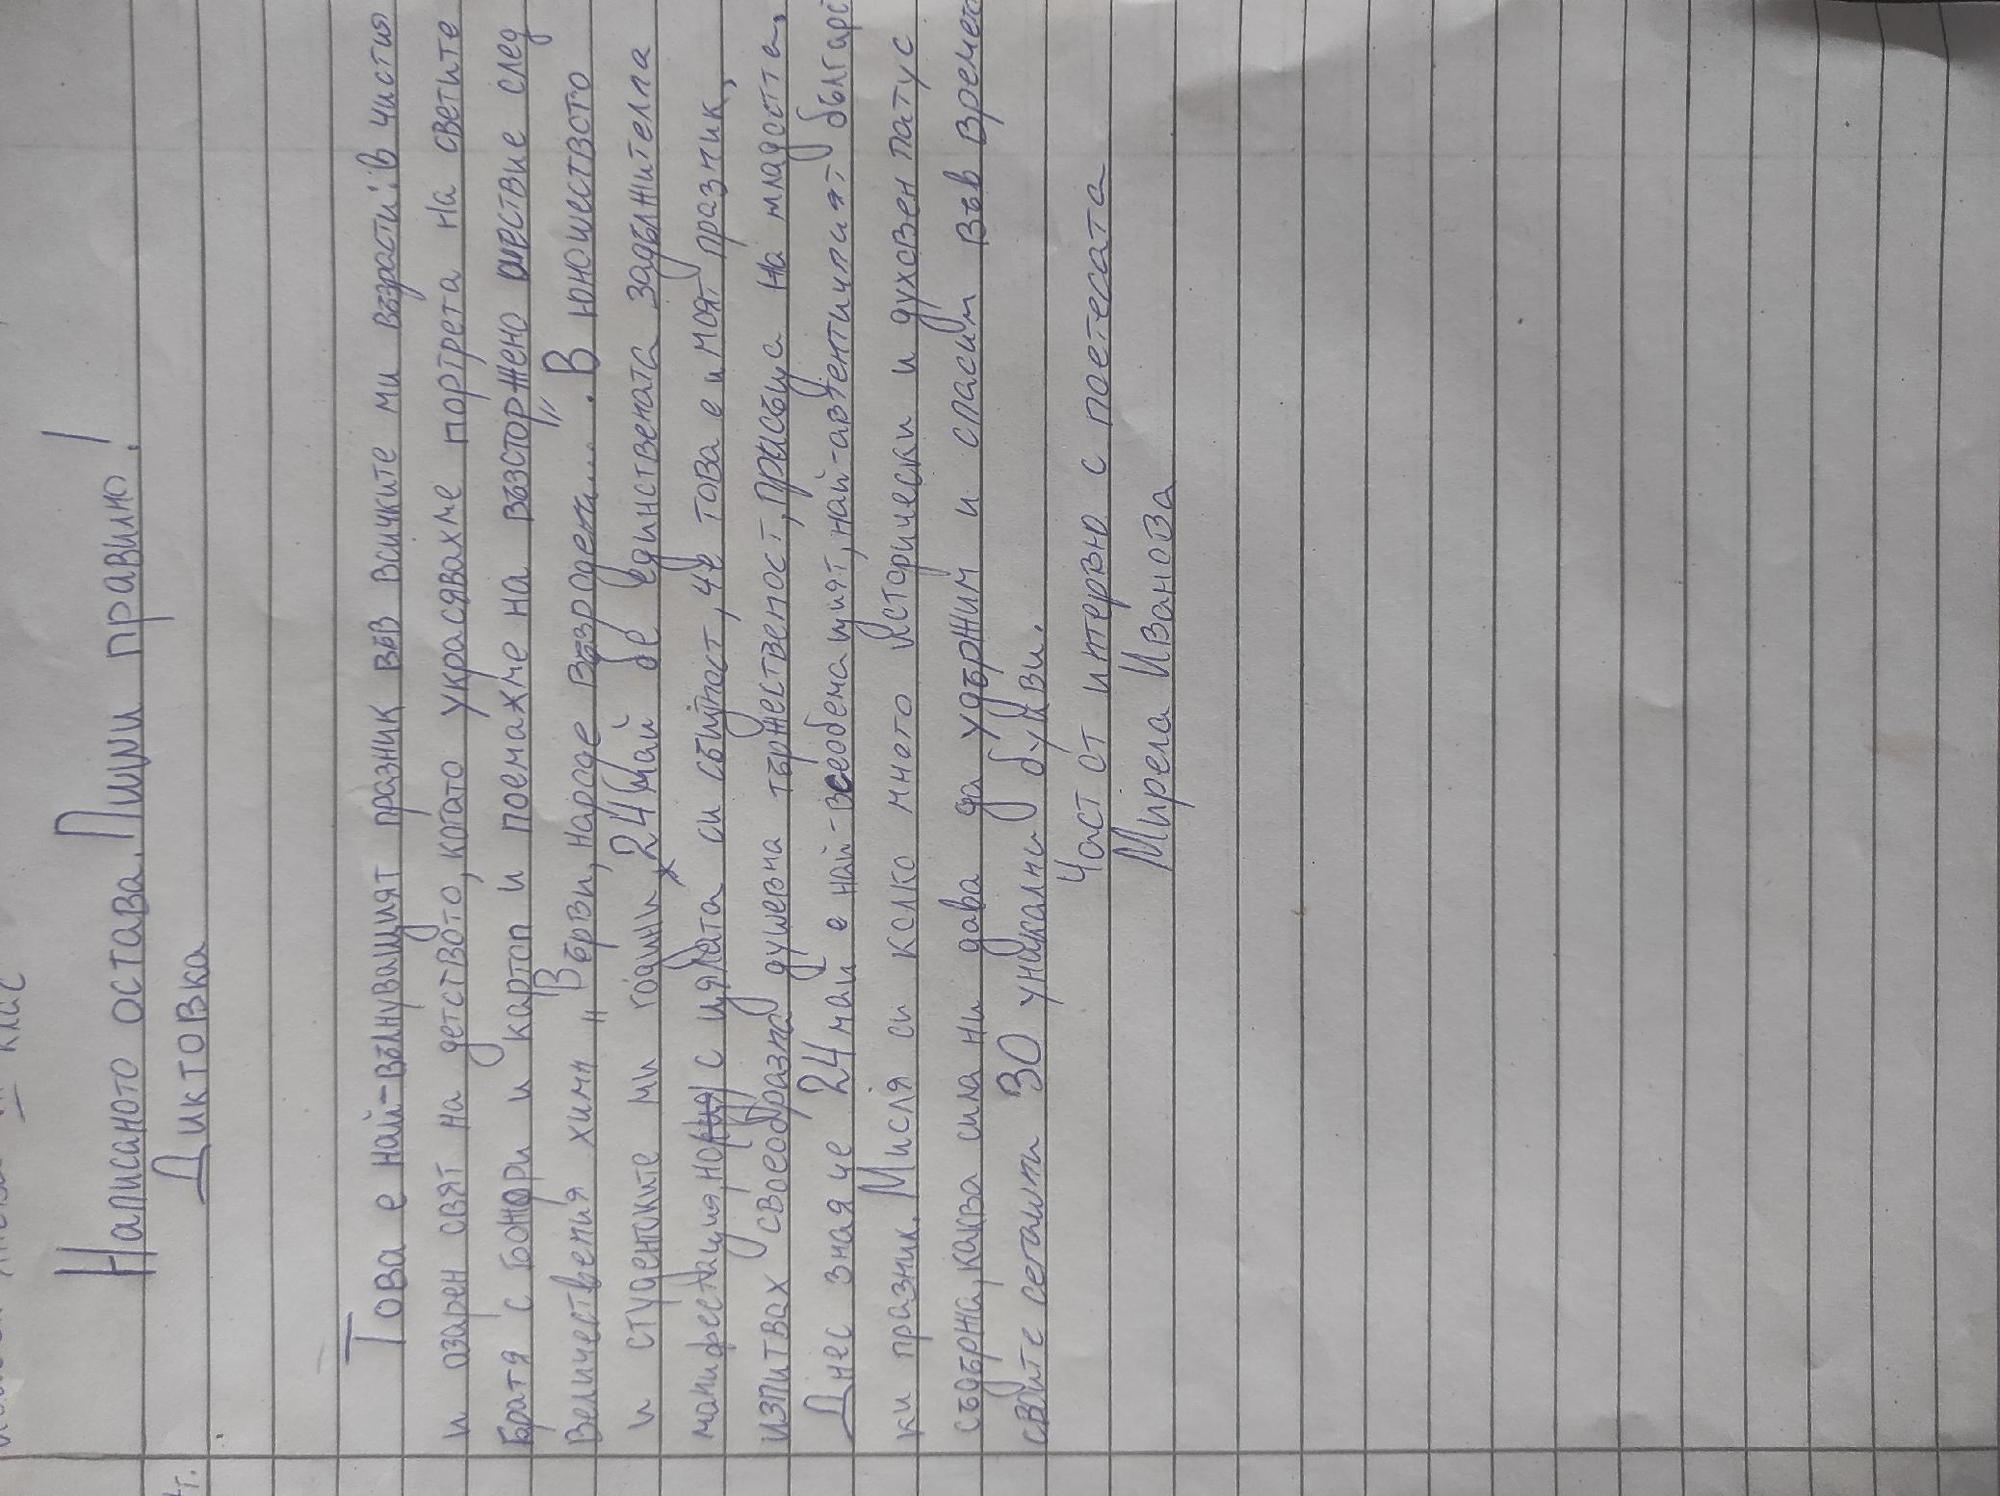 клас
Написаното остава. Пиши правилно!
Диктовка
Това е най-вълнуващият празник във всичките ми възрасти: в чистия
и озарен свят на детството, когато украсявахме портрета на светите
братя с божури и картоп и поемахме на възторжено шествие след
величествения химн "Върви, народе възродени.....". В юношеството
и студенските ми години 24 май бе единствената задължителна
манифестация, но с цялата си същност, че това е и моят празник,
изпитвах своеобразна душевна тържественост, присъща на младостта.
Днес зная че 24 май е най-всеобемащият, най-автентичният българс
ки празник. Мисля си колко много исторически и духовен патус
съдържа, каква сила ни дава да удържим и спасим във времен
свойте сегашни 30 уникални букви.
Част от интервю с поетесата
Мирела Иванова